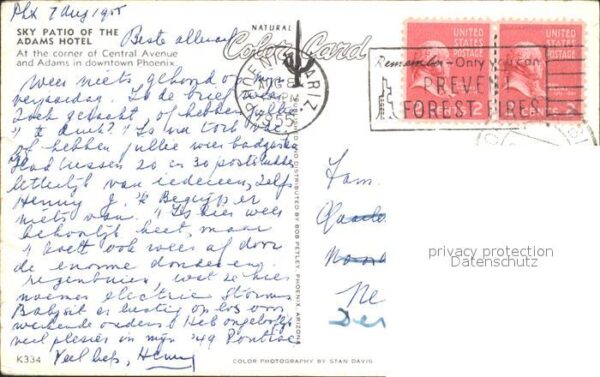 Phx 7 Aug 1955
SKY PATIO OF THE
ADAMS HOTEL
Beste allemaal
At the corner of Central Avenue
and Adams in downtown Phoenix.
NATURAL
Color Card
PHOENIX, ARIZ.
AUG 8
PM
1955
Remember - Only you can
PREVENT
FOREST FIRES
UNITED STATES POSTAGE
2 CENTS 2
UNITED STATES POSTAGE
2 CENTS 2
Weer niets gehoord op mijn
verjaardag. Is de brief weer
zoek geraakt of hebben jullie
't druk? Is va
of hebben jullie weer
Had tussen 20 en 30 postzakken
letterlijk van iedereen, zelfs
Henny J. 'k Begrijp er
niets van. 't Is hier weer
behoorlijk heet, maar
't koelt ook weer af door
de enorme donder en
regenbuien, wat ze hier
noemen electric storms
Babysit er lustig op los voor
werkende ouders. Heb ongelooflijk
veel plezier in mijn '49 Pontiac
Veel liefs, Henny
DISTRIBUTED BY BOB PETLEY, PHOENIX, ARIZONA
Fam.
Ne
Den
privacy protection
Datenschutz
K334
COLOR PHOTOGRAPHY BY STAN DAVIS